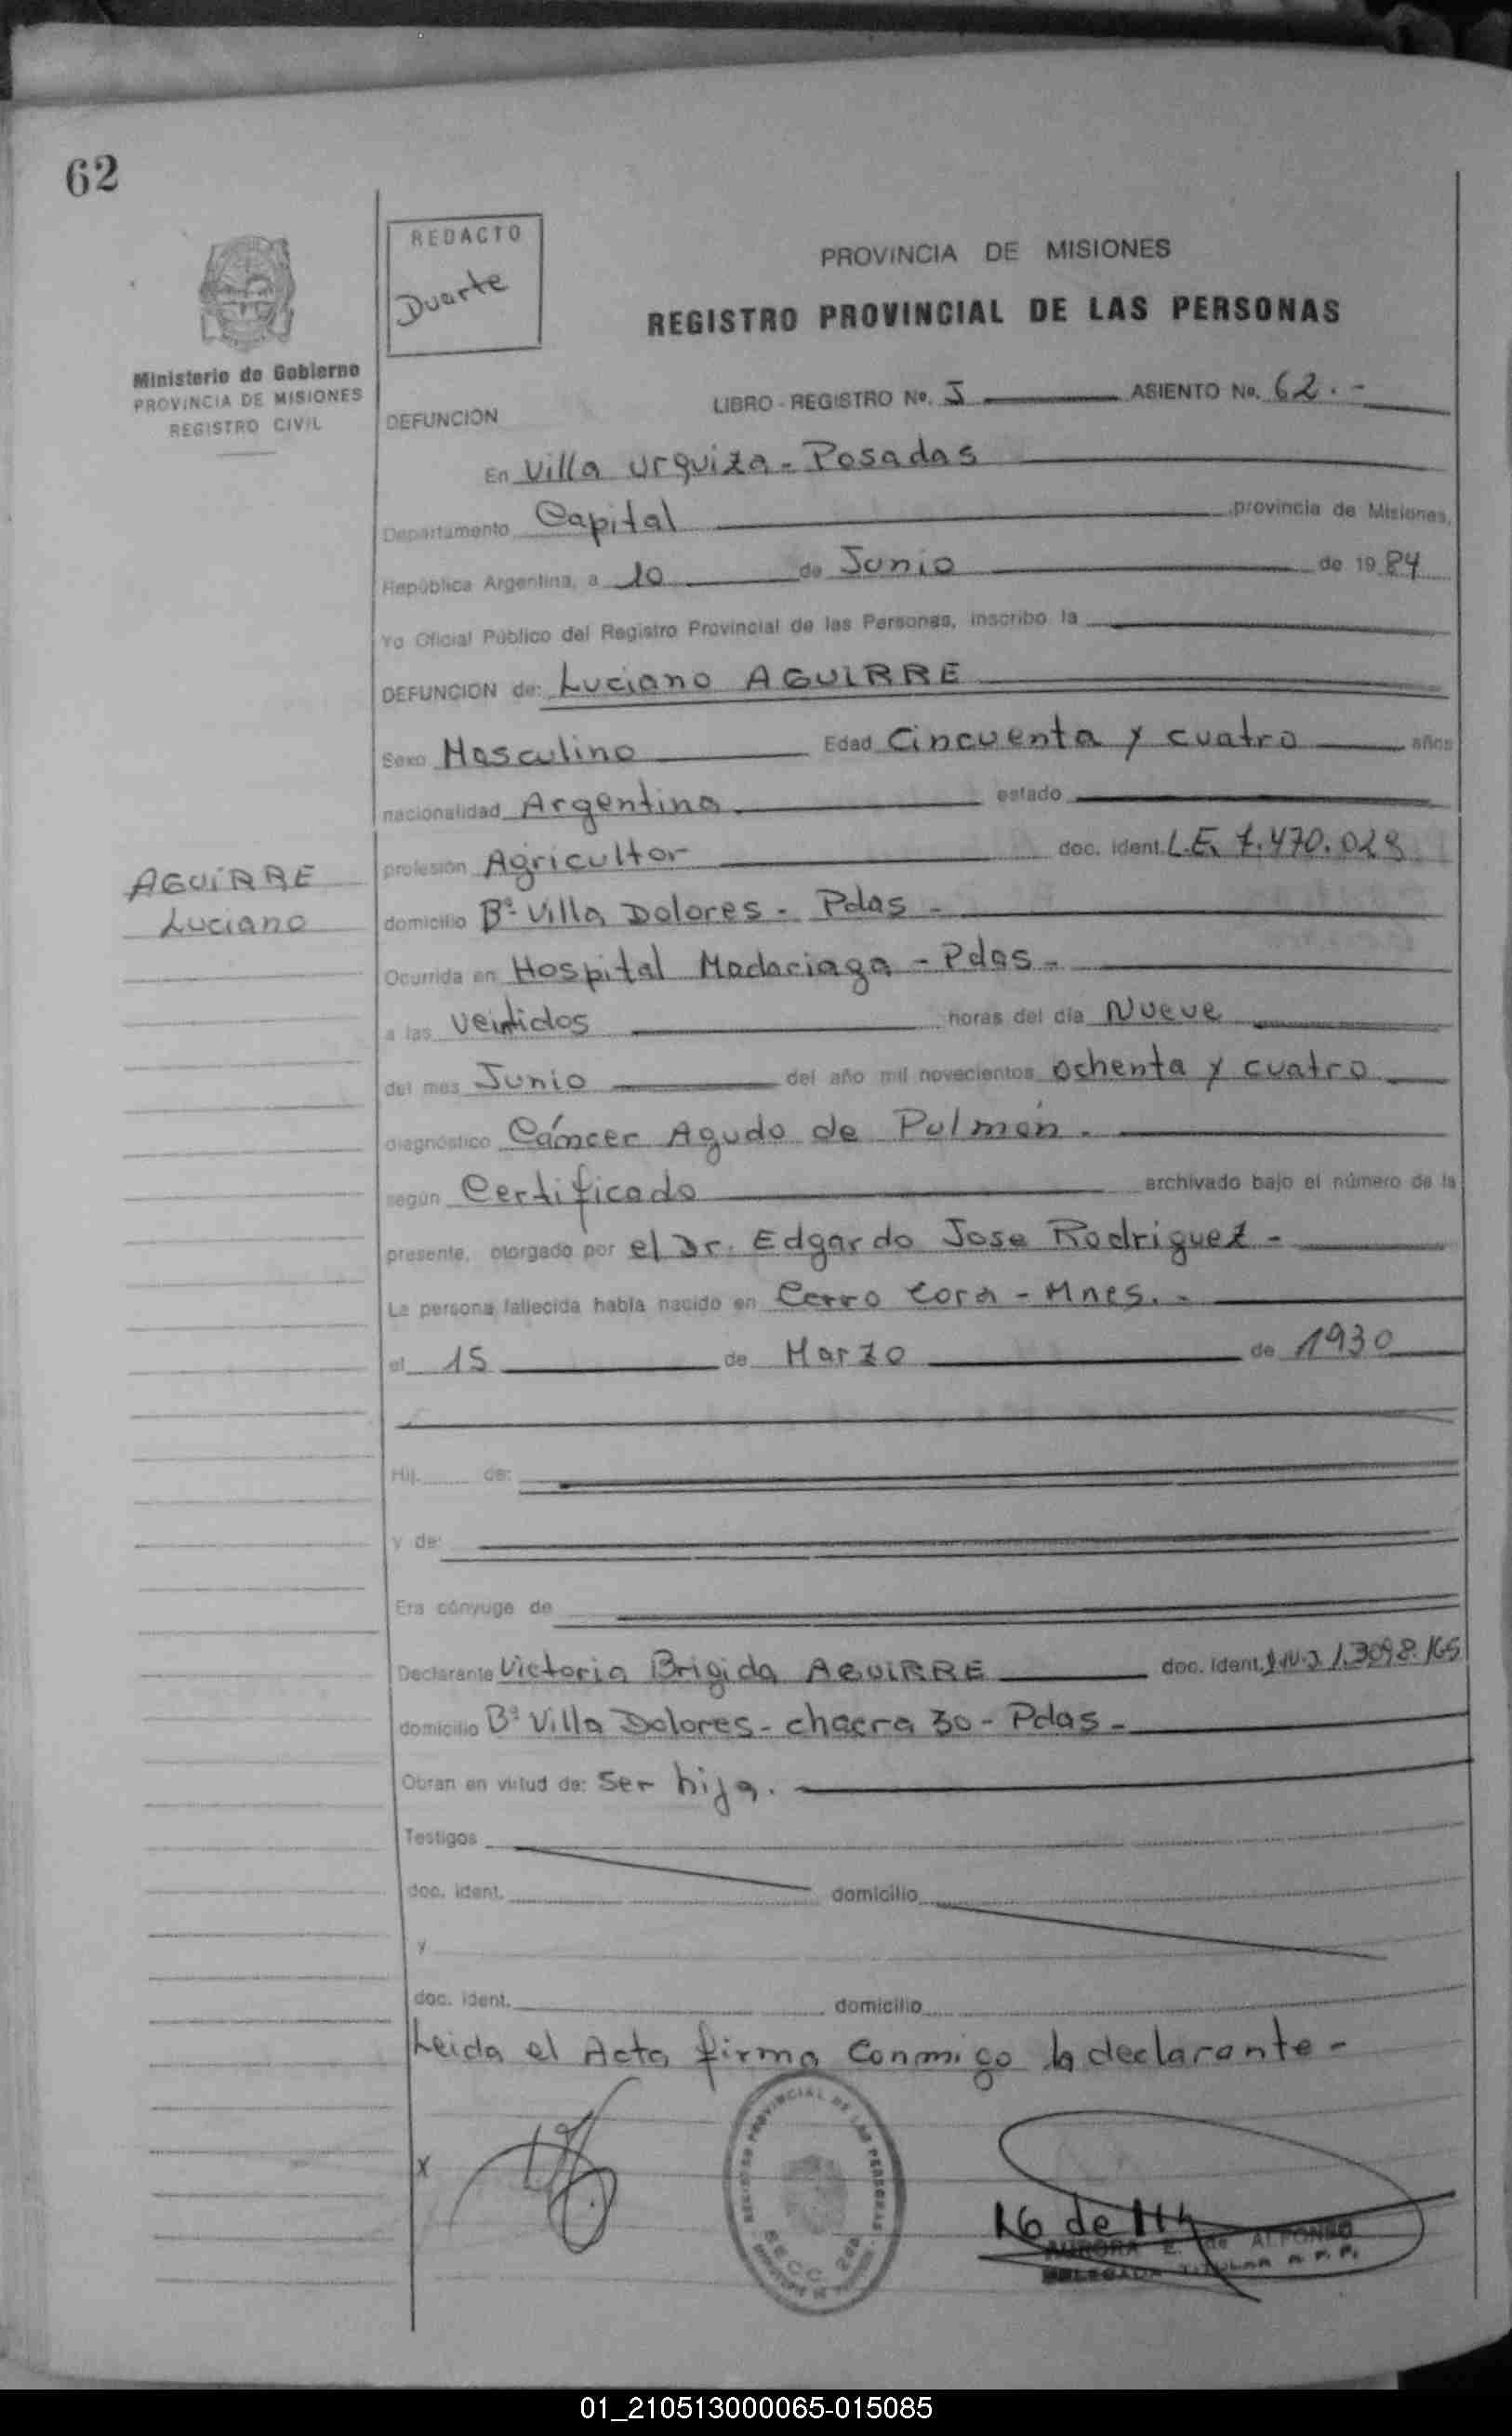 62
REDACTO
Duarte
Ministerio de Gobierno
PROVINCIA DE MISIONES
REGISTRO CIVIL
PROVINCIA DE MISIONES
REGISTRO PROVINCIAL DE LAS PERSONAS
LIBRO - REGISTRO No. I ASIENTO No. 62.-
DEFUNCION
En Villa Urquiza - Posadas
Departamento Capital provincia de Misiones,
República Argentina, a 10 de Junio de 1984
Yo Oficial Público del Registro Provincial de las Personas, inscribo la
DEFUNCION de: Luciano AGUIRRE
Sexo Masculino Edad Cincuenta y cuatro años
nacionalidad Argentina estado
AGUIRRE
Luciano
profesión Agricultor doc. ident. L.E. 7.470.028
domicilio Bº Villa Dolores - Pdas -
Ocurrida en Hospital Madariaga - Pdas -
a las Veintidos horas del día Nueve
del mes Junio del año mil novecientos ochenta y cuatro
diagnóstico Cáncer Agudo de Pulmón.
según Certificado archivado bajo el número de la
presente, otorgado por el Dr. Edgardo Jose Rodriguez -
La persona fallecida había nacido en Cerro Cora - Mnes. -
el 15 de Marzo de 1930
Hij de:
y de:
Era cónyuge de
Declarante Victoria Brigida AGUIRRE doc. ident.
domicilio Bº Villa Dolores - chacra 30 - Pdas -
Obran en virtud de: Ser hija.
Testigos
doc. ident. domicilio
y
doc. ident. domicilio
Leida el Acta firma Conmigo la declarante -
X
REGISTRO PROVINCIAL DE LAS PERSONAS
SECC.
AURORA E. de ALFONSO
DELEGADA TITULAR R.P.P.
01_210513000065-015085